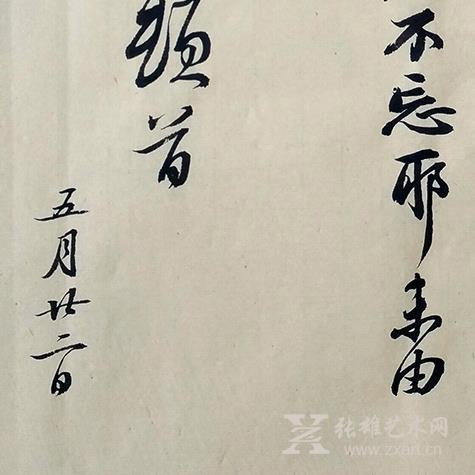 不忘耶未由
頓首
五月廿二日
张雄艺术网
www.zxart.cn